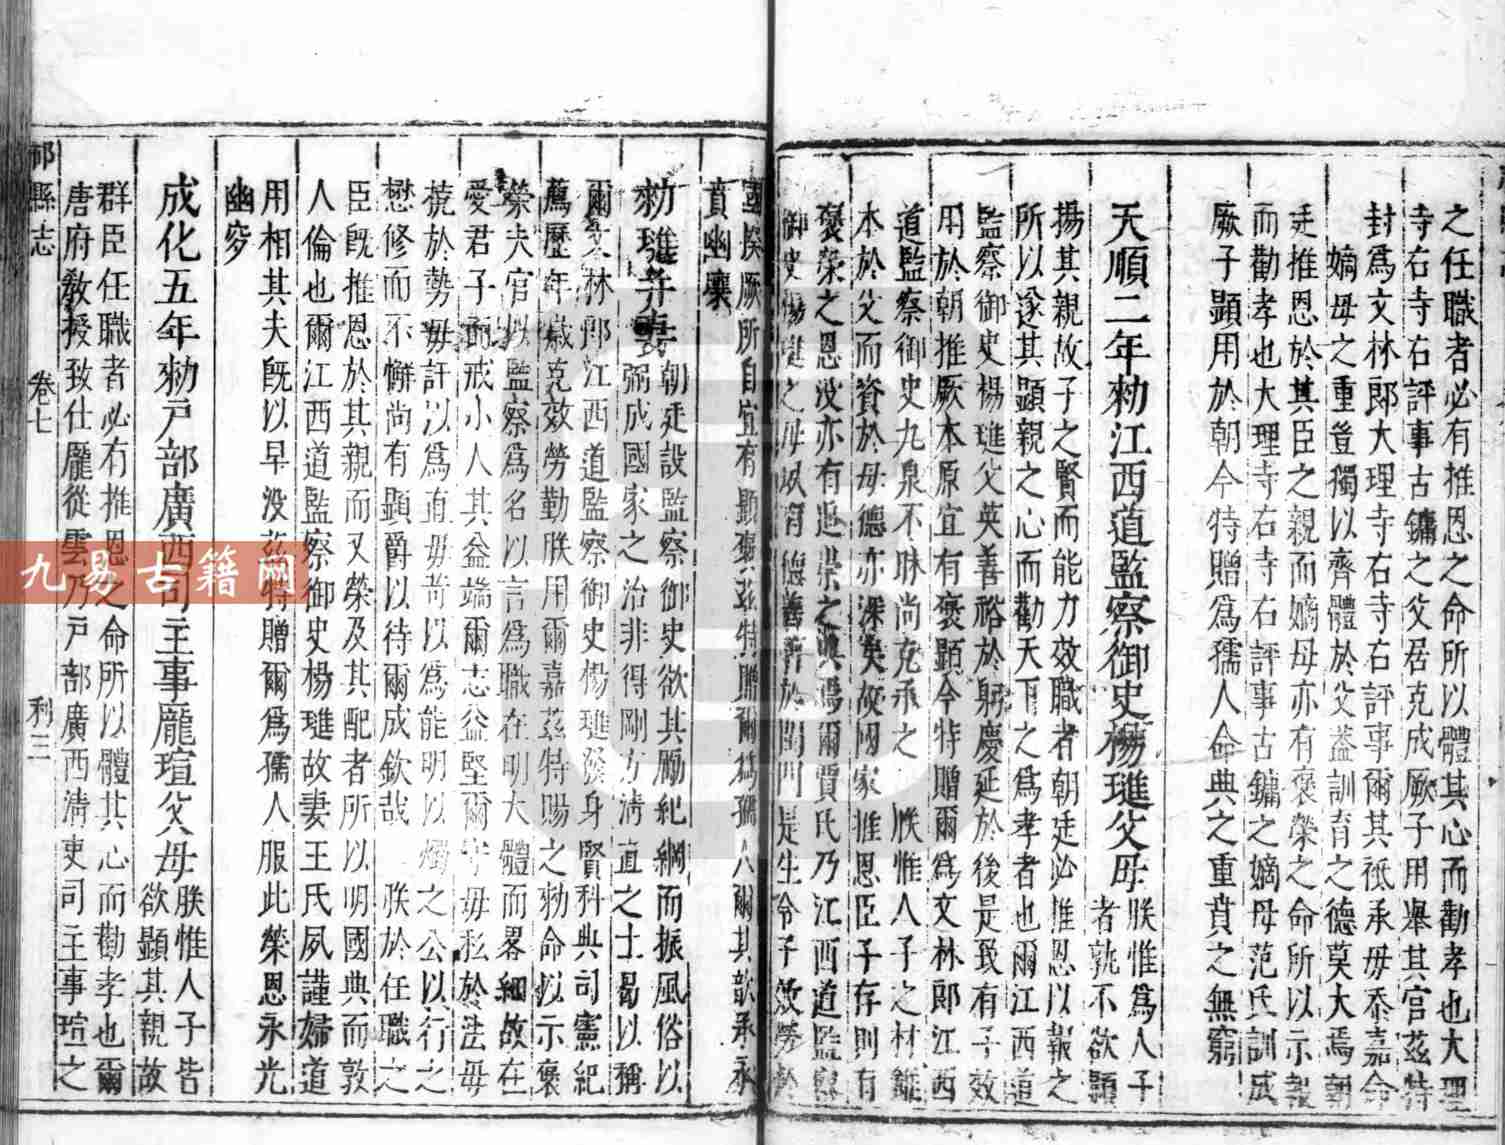 之任職者必有推恩之命所以體其心而勸孝也大理
寺右寺右評事古鏞之父居克成厥子用舉其官茲特
封爲文林郎大理寺右寺右評事爾其祗承毋忝嘉命
嫡母之重登獨以齊體於父益訓育之德莫大焉朝
廷推恩於其臣之親而嫡母亦有褒榮之命所以示報
而勸孝也大理寺右寺右評事古鏞之嫡母范氏訓成
厥子顯用於朝今特贈爲孺人命典之重賁之無窮
天順二年勑江西道監察御史楊璡父母
朕惟爲人子
者孰不欲顯
揚其親故子之賢而能力效職者朝廷必推恩以報之
所以遂其顯親之心而勸天下之爲孝者也爾江西道
監察御史楊璡父英善裕於躬慶延於後是致有子效
用於朝推厥本原宜有褒顯今特贈爾爲文林郎江西
道監察御史九泉不昧尚克承之 朕惟人子之材雖
本於父而資於母德亦深矣故國家推恩臣子存則有
褒榮之恩沒亦有追崇之典爾賈氏乃江西道監察
御史楊璡之母夙有德善於閨門是生令子效勞於
國揆厥所自宜有顯褒茲特贈爾爲孺人爾其歆承永
賁幽壤
勑璡并妻
朝廷設監察御史欲其勵紀綱而振風俗以
弼成國家之治非得剛方清直之士曷以稱
爾文林郎江西道監察御史楊璡發身賢科典司憲紀
薦歷年歲克效勞勤朕用爾嘉茲特賜之勑命以示褒
榮夫官以監察爲名以言爲職在明大體而畧細故在
愛君子而戒小人其益端爾志益堅爾守毋私於法毋
撓於勢毋訐以爲直毋苛以爲能明以燭之公以行之
懋修而不懈尚有顯爵以待爾成欽哉 朕於任職之
臣既推恩於其親而又榮及其配者所以明國典而敦
人倫也爾江西道監察御史楊璡故妻王氏夙謹婦道
用相其夫既以早没茲特贈爾爲孺人服此榮恩永光
幽穸
成化五年勑戸部廣西司主事龎瑄父母
朕惟人子皆
欲顯其親故
群臣任職者必有推恩之命所以體其心而勸孝也爾
唐府教授致仕龎從雲乃戸部廣西清吏司主事瑄之
祁縣志
卷七
利三
九易古籍网